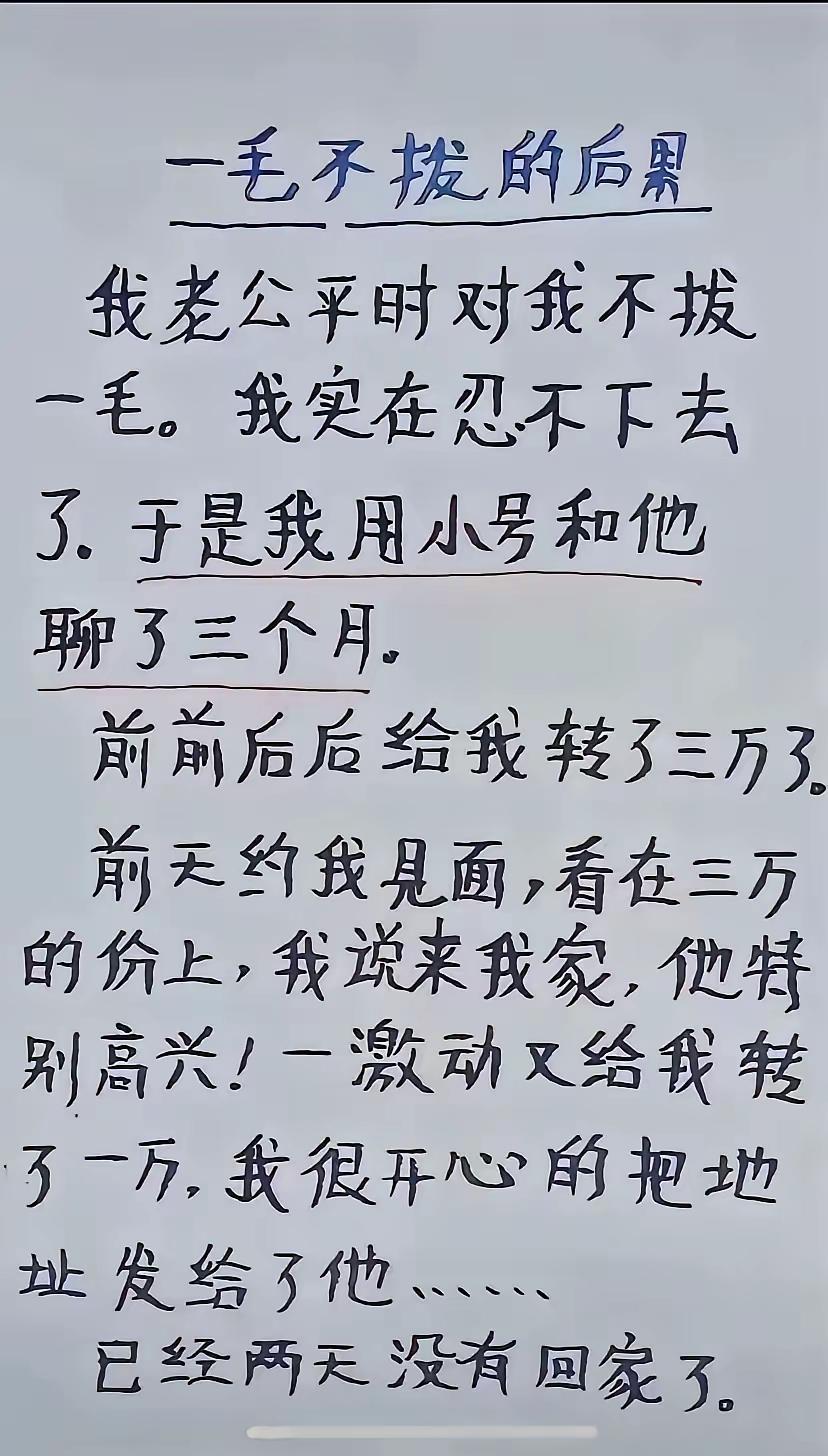 一毛不拔的后果
我老公平时对我不拔
一毛。我实在忍不下去
了.于是我用小号和他
聊了三个月.
前前后后给我转了三万了。
前天约我见面,看在三万
的份上,我说来我家,他特
别高兴!一激动又给我转
了一万,我很开心的把地
址发给了他……
已经两天没有回家了。